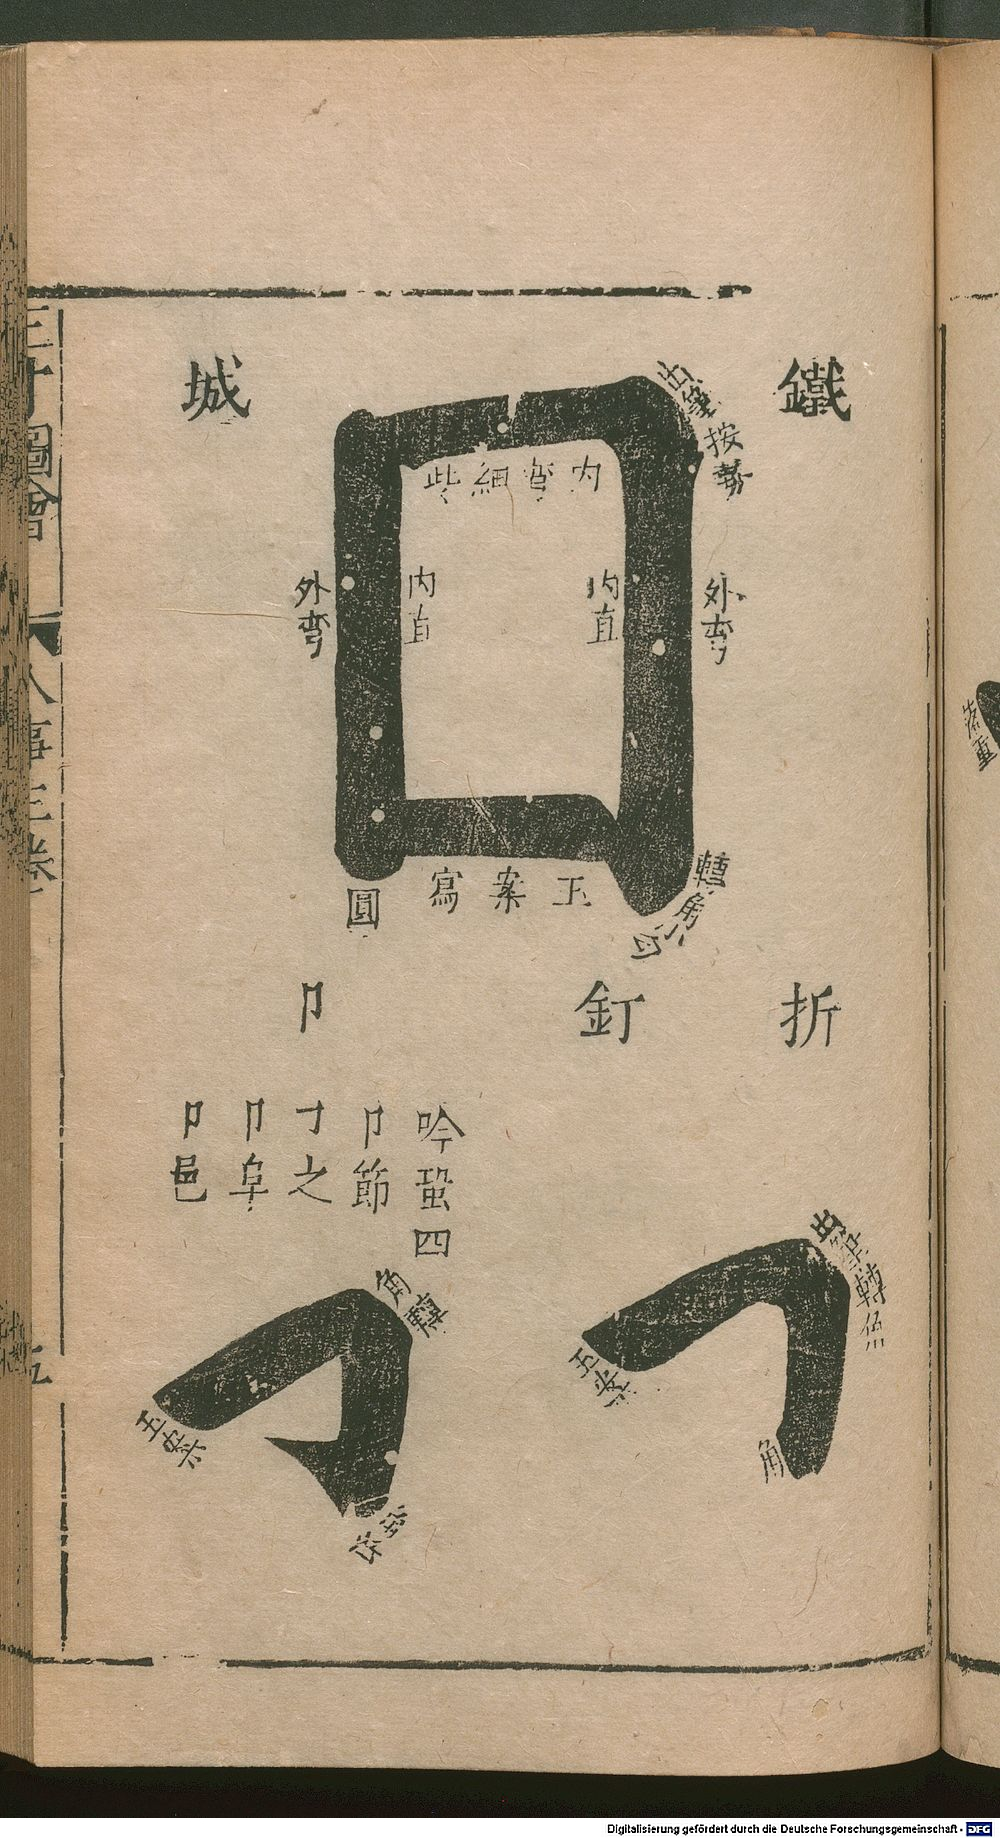 鐵城
出鋒按勢
內彎細些
外彎
內直
內直
外彎
轉角小
玉案寫
圓
折釘卩
吟蛩四
卩節
寸之
卩阜
卩邑
出鋒轉
角
玉案
角轉
玉案
三才圖會
人事三卷
五
落重
Digitalisierung gefördert durch die Deutsche Forschungsgemeinschaft - DFG